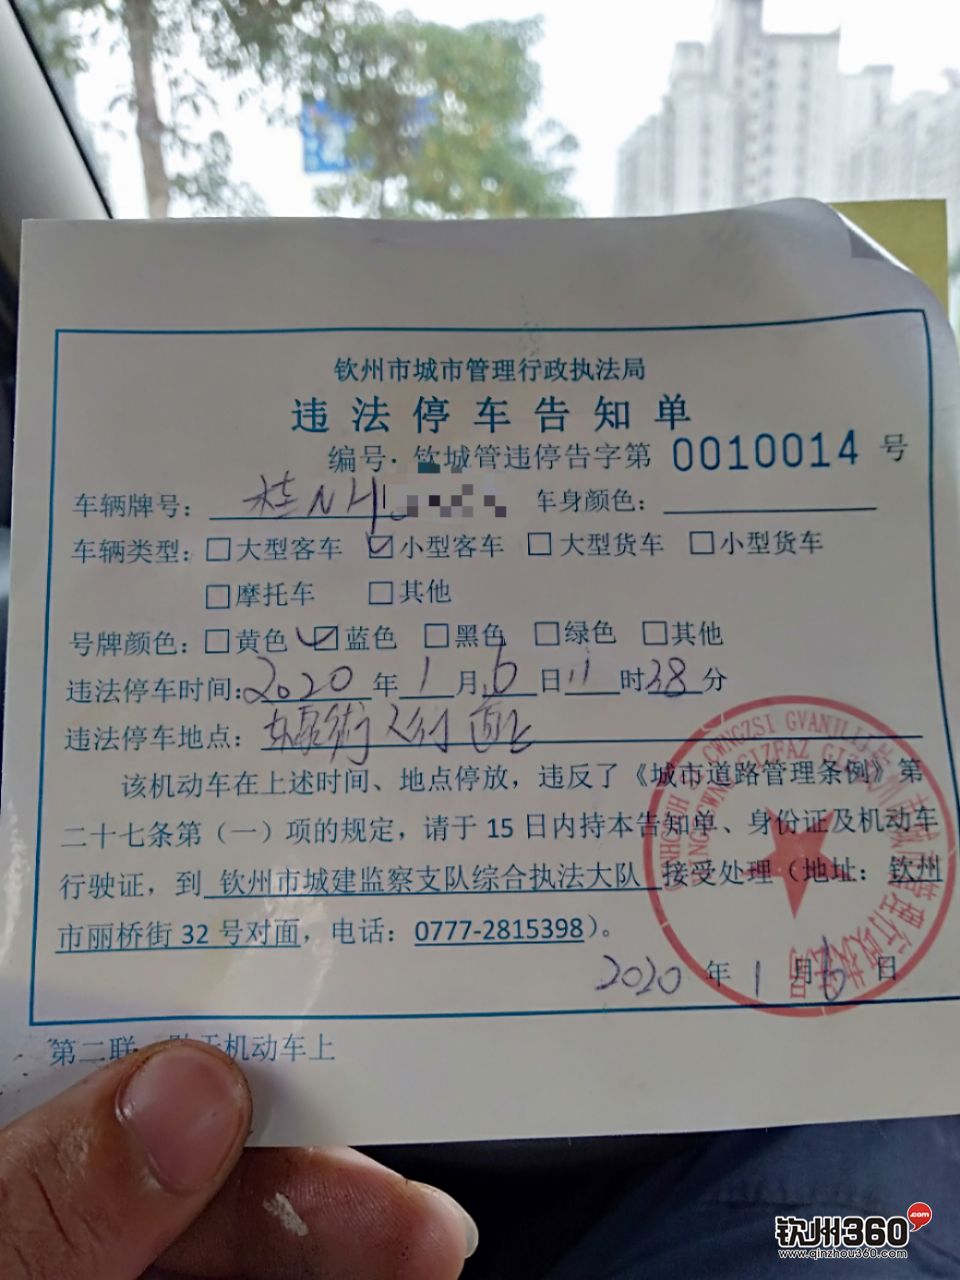 钦州市城市管理行政执法局
违法停车告知单
编号:钦城管违停告字第 0010014 号
车辆牌号: 桂N 车身颜色:
车辆类型: □大型客车 ☑小型客车 □大型货车 □小型货车
□摩托车 □其他
号牌颜色: □黄色 ☑蓝色 □黑色 □绿色 □其他
违法停车时间: 2020 年 1 月 6 日 11 时 38 分
违法停车地点: 街人行道上
该机动车在上述时间、地点停放，违反了《城市道路管理条例》第
二十七条第（一）项的规定，请于 15 日内持本告知单、身份证及机动车
行驶证，到 钦州市城建监察支队综合执法大队 接受处理（地址：钦州
市丽桥街 32 号对面，电话：0777-2815398）。
2020 年 1 月 6 日
第二联 机动车上
钦州360.com
www.qinzhou360.com